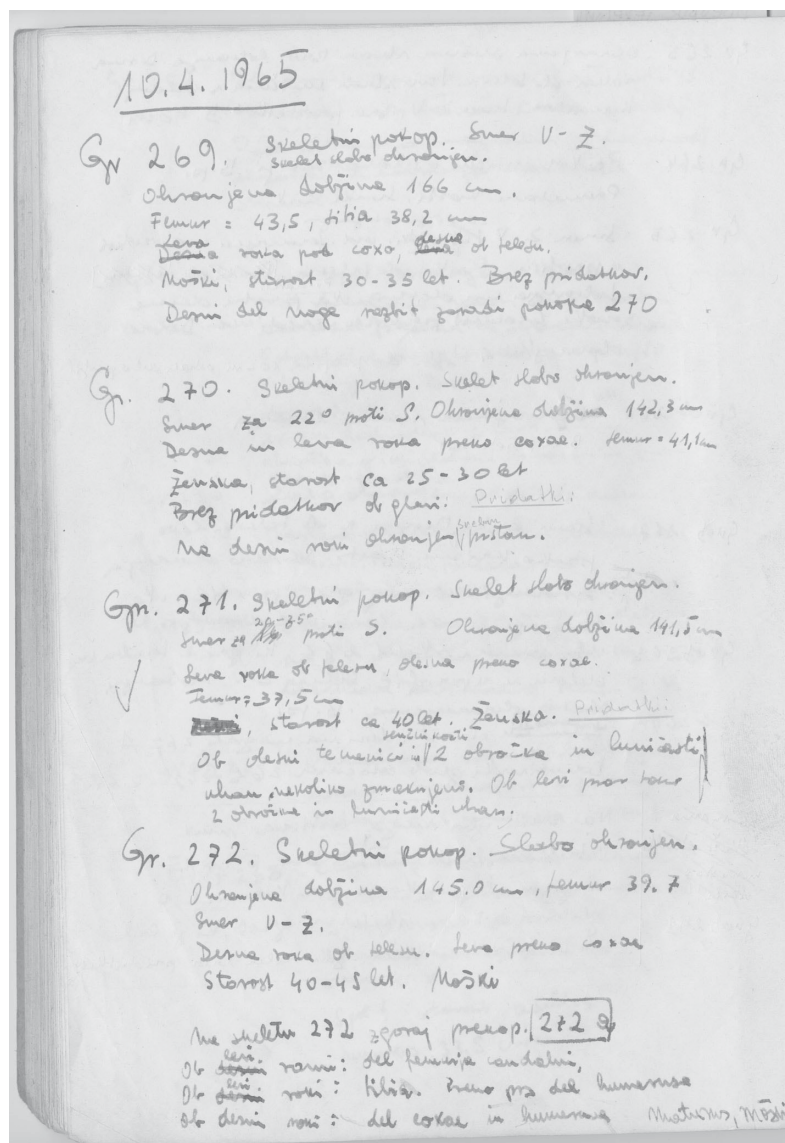 10.4.1965
Gr 269. Skeletni pokop. Smer V-Z.
Skelet slabo ohranjen.
Ohranjena dolžina 166 cm.
Femur = 43,5, tibia 38,2 cm
Leva roka pod coxo, desna ob telesu.
Moški, starost 30-35 let. Brez pridatkov.
Desni del noge razbit zaradi pokopa 270
Gr. 270. Skeletni pokop. Skelet slabo ohranjen.
Smer za 22° proti S. Ohranjena dolžina 142,3 cm
Desna in leva roka preko coxae. femur = 41,1 cm
Ženska, starost ca 25-30 let
Brez pridatkov ob glavi. Pridatki:
Na desni roki ohranjen srebrn prstan.
Grn. 271. Skeletni pokop. Skelet slabo ohranjen.
Smer za proti S. Ohranjena dolžina 141,5 cm
Leva roka ob telesu, desna preko coxae.
Femur = 37,5 cm
, starost ca 40 let. Ženska. Pridatki:
Ob desni temenici in senčni kosti 2 obročka in luničasti
uhan, nekoliko zmaknjeni. Ob levi prav
2 obročka in luničasti uhan.
Gr. 272. Skeletni pokop. Slabo ohranjen.
Ohranjena dolžina 145.0 cm, femur 39.7
Smer V-Z.
Desna roka ob telesu. Leva preko coxae
Starost 40-45 let. Moški
Na skeletu 272 zgoraj prekop. 272 a
Ob levi rami: del femurja caudalni,
Ob levi roki: tibia. del humerusa
Ob desni roki: del coxae in humerusa Maturus, moški